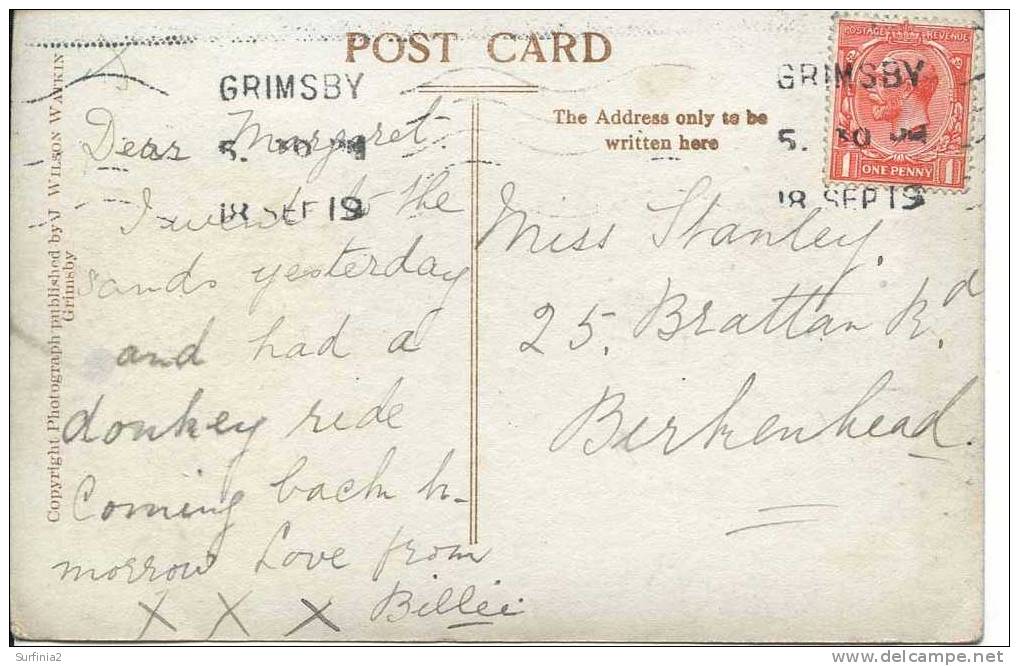 POST CARD
GRIMSBY
5. 30
18 SEP 19
GRIMSBY
5. 30
18 SEP 19
POSTAGE REVENUE
1 ONE PENNY 1
The Address only to be
written here
Copyright Photograph published by J WILSON WATKIN
Grimsby
Dear Margaret
I went to the
sands yesterday
and had a
donkey ride
Coming back to-
morrow Love from
X X X Billie
Miss Stanley,
25, Brattan Rd.
Birkenhead.
Surfinia2
delcampe.net